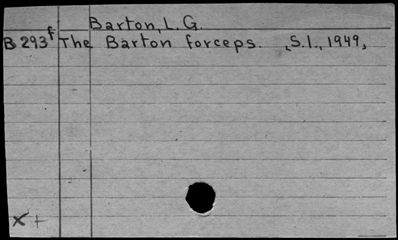 Barton, L. G.
B 293f The Barton forceps. S.l., 1949,
x +